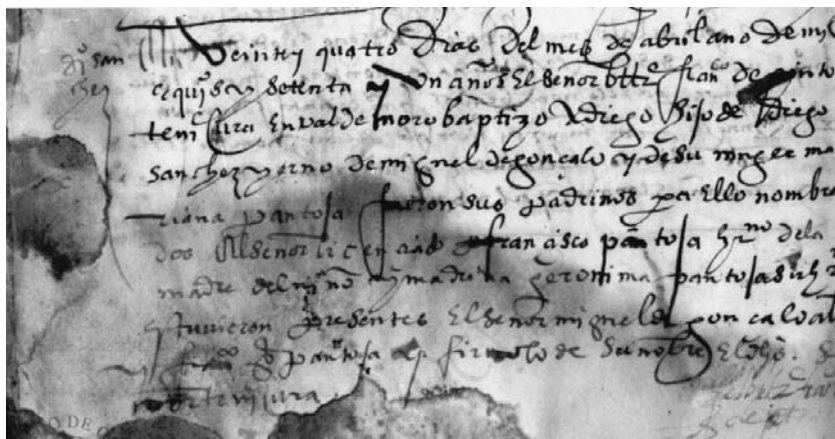 di° san
chez
Veinte y quatro dias del mes de abril ano de mil
e quis y setenta y un años El señor bllr franco de pinto
teni Cura En valdemoro baptizo a diego hijo de diego
sanchez yerno de miguel de gonçalo y de su muger ma
riana pantoja fueron sus padrinos pa Ello nombra
dos El señor licenciado francisco pantoja hrno de la
madre del niño y madrina geronima pantoja su hr
Estuvieron presentes El señor miguel de gonçalo al
franco de pantoja e firmolo de su nobre El dho
teni cura